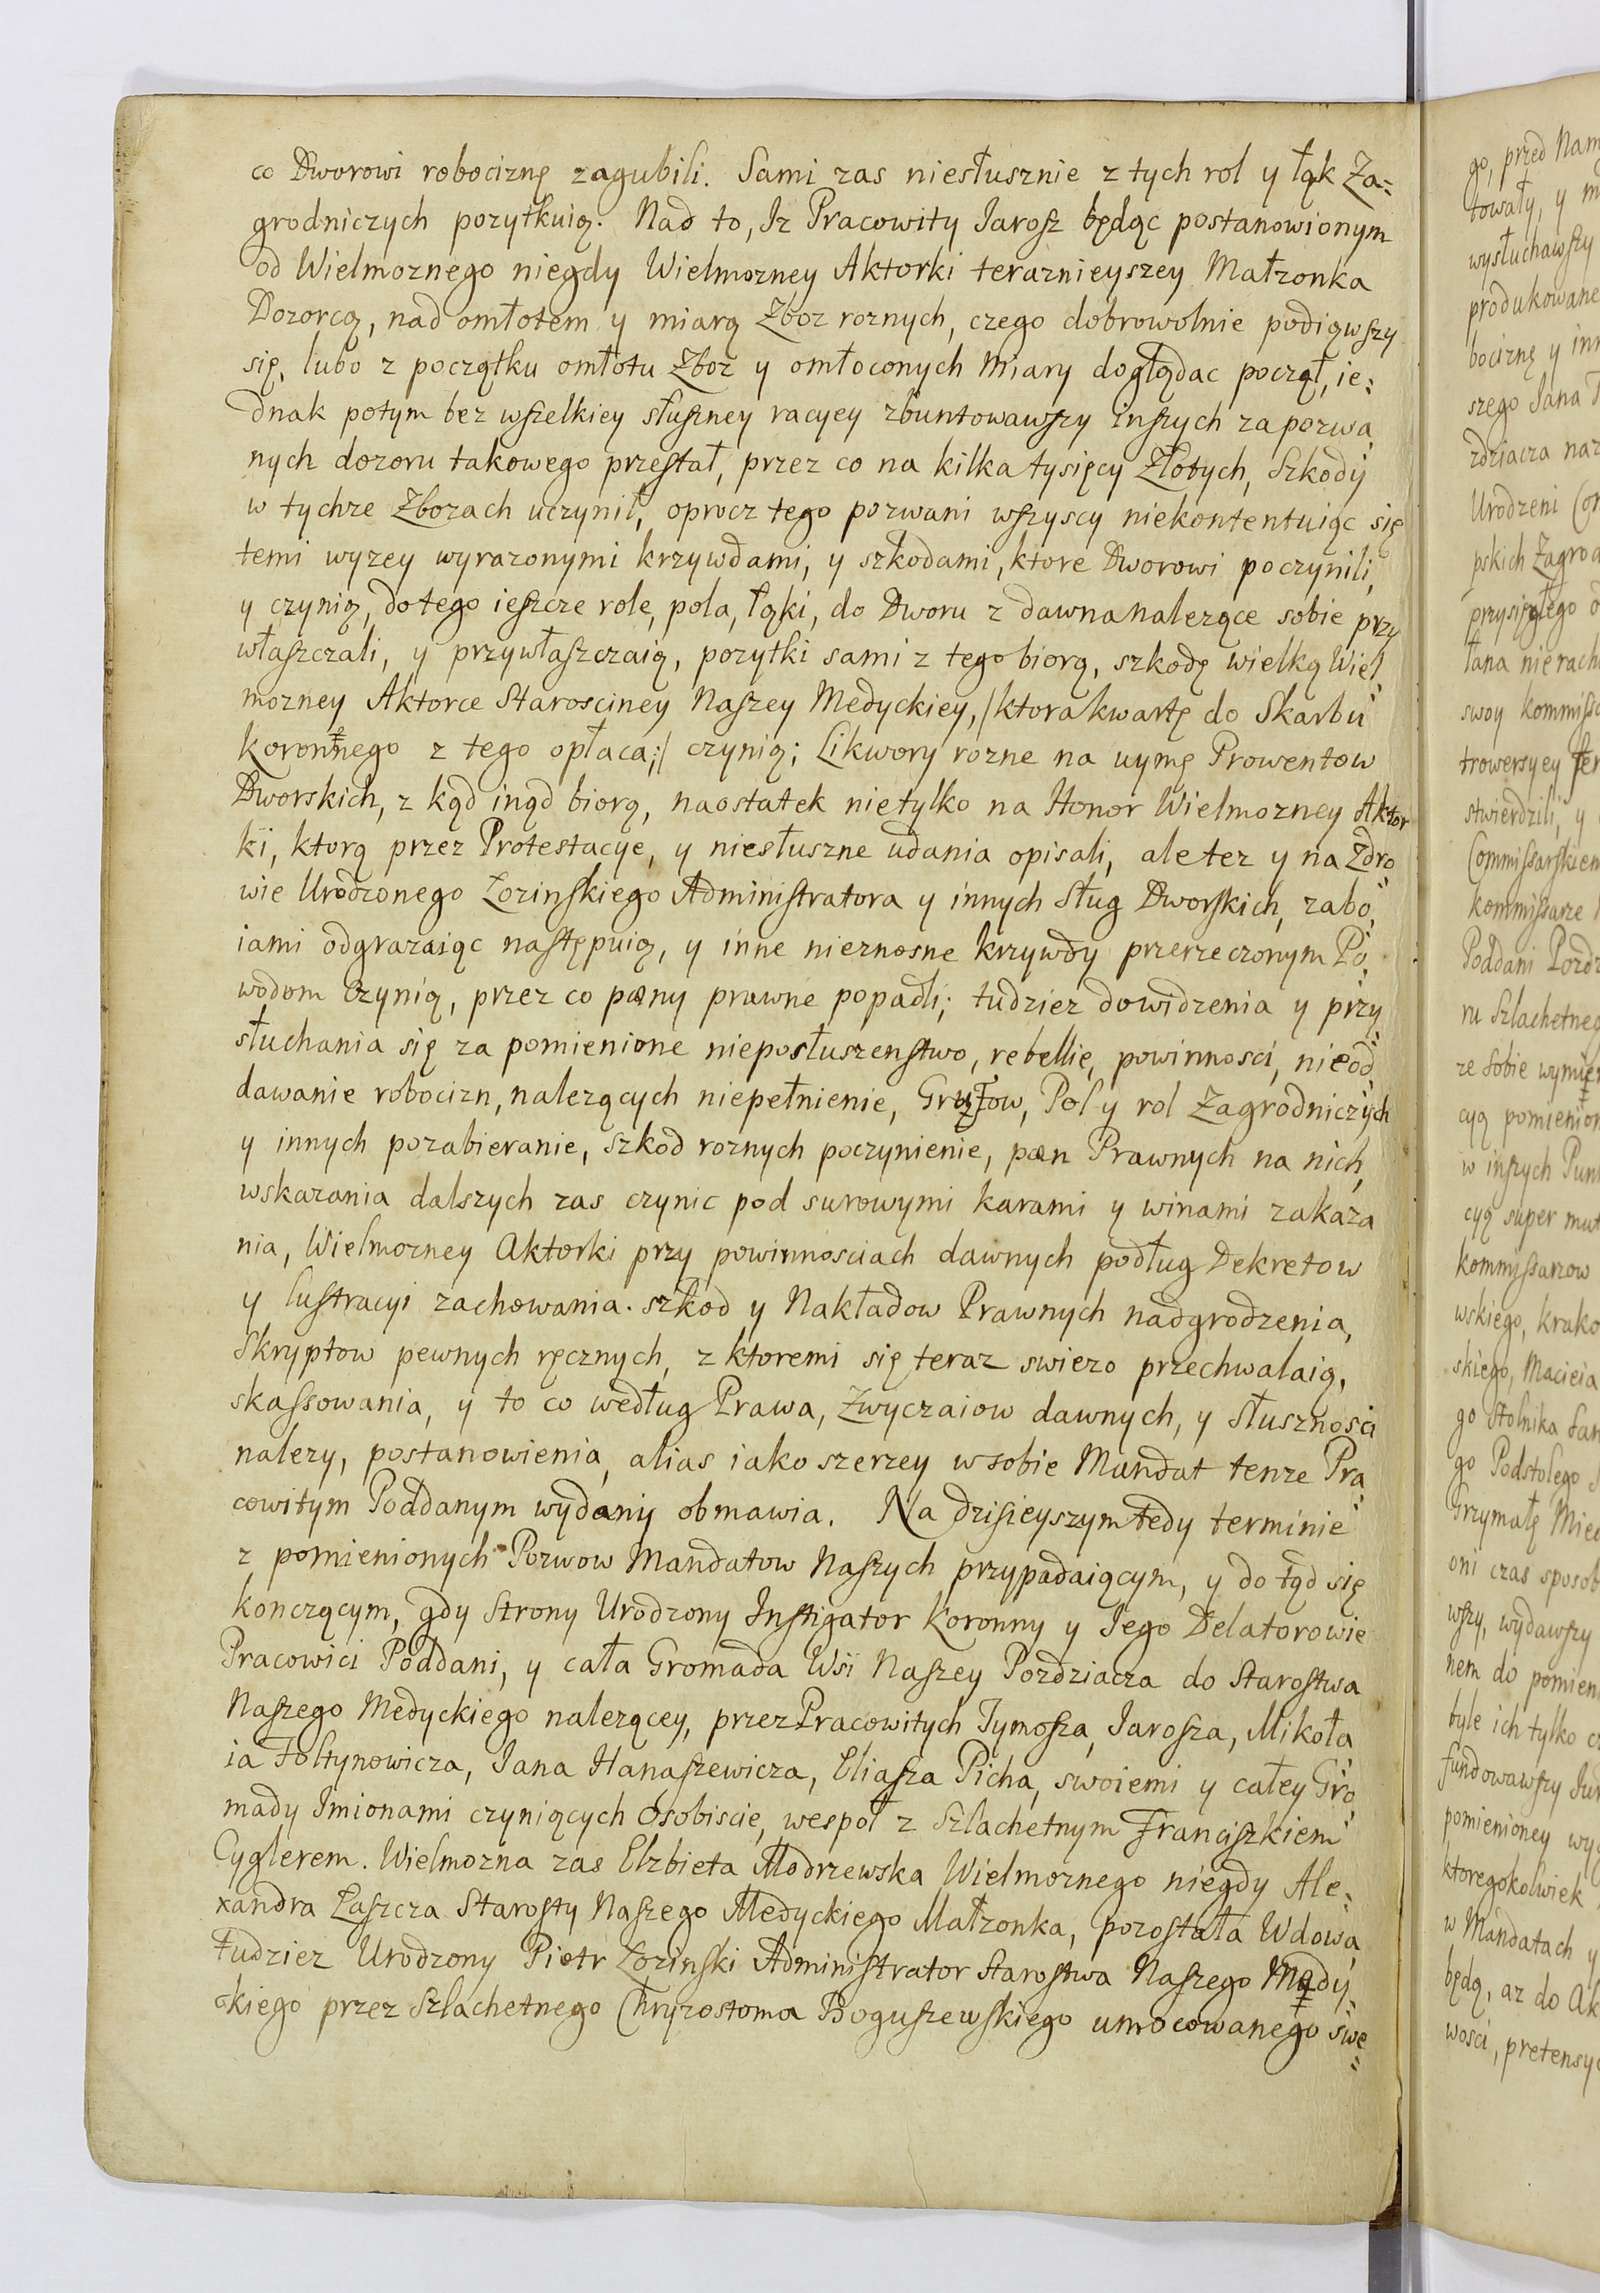 co Dworowi robociznę zagubili. Sami zas niesłusznie z tych rol y łąk Za=
grodniczych pozytkuią. Nad to, Iz Pracowity Iarosz będąc postanowionym
od Wielmoznego niegdy Wielmozney Aktorki teraznieyszey Małzonka
Dozorcą, nad omłotem y miarą Zboz roznych, czego dobrowolnie podiąwszy
się, lubo z początku omłotu Zboz y omłoconych Miary doglądac począł, ie=
dnak potym bez wszelkiey słuszney racyey zbuntowawszy inszych zapozwa
nych dozoru takowego przestał, przez co na kilka tysięcy Złotych, Szkody
w tychze Zbozach uczynił, oprocz tego pozwani wszyscy niekontentuiąc się
temi wyzey wyrazonymi krzywdami, y szkodami, ktore Dworowi poczynili,
y czynią, do tego ieszcze role, pola, łąki, do Dworu z dawna nalezące sobie przy
własczali, y przywłaszczaią, pozytki sami z tego biorą, szkodę wielką Wiel
mozney Aktorce Starosciney Naszey Medyckiey, /ktora kwartę do Skarbu
koronnego z tego opłaca;/ czynią; Likwory rozne na uymę Prowentow
Dworskich, z kąd inąd biorą, naostatek nietylko na Honor Wielmozney Aktor
ki, ktorą przez Protestacye, y niesłuszne udania opisali, ale tez y na Zdro
wie Urodzonego Lozinskiego Administratora y innych Sług Dworskich, zabo
iami odgrazaiąc następuią, y inne nieznosne krzywdy przerzeczonym Po
wodom czynią, przez co pæny prawne popadli; tudziez do widzenia y przy
słuchania się za pomienione nieposłuszenstwo, rebellie, powinnosci, nieod
dawanie robocizn, nalezących niepełnienie, Grutow, Pol y rol Zagrodniczych
y innych pozabieranie, szkod roznych poczynienie, pæn Prawnych na nich,
wskazania dalszych zas czynic pod surowymi karami y winami zakaza
nia, Wielmozney Aktorki przy powinnosciach dawnych podług Dekretow
y lustracyi zachowania. szkod y Nakładow Prawnych nadgrodzenia,
Skryptow pewnych ręcznych, z ktoremi się teraz swiezo przechwalaią,
skassowania, y to co według Prawa, Zwyczaiow dawnych, y słusznosci
nalezy, postanowienia, alias iako szerzey w sobie Mandat tenze Pra
cowitym Poddanym wydany obmawia. Na dzisieyszym tedy terminie
z pomienionych Pozwow Mandatow Naszych przypadaiącym, y do tąd się
konczącym, gdy Strony Urodzony Instigator Koronny y Iego Delatorowie
Pracowici Poddani, y cała Gromada Wsi Naszey Pozdziacza do Starostwa
Naszego Medyckiego nalezącey, przez Pracowitych Tymosza, Iarosza, Mikoła
ia Foltynowicza, Iana Hanaszewicza, Eliasza Picha, swoiemi y całey Gro
mady Imionami czyniących osobiscie, wespoł z Szlachetnym Franciszkiem
Cyglerem. Wielmozna zas Elzbieta Modrzewska Wielmoznego niegdy Ale=
xandra Łaszcza Starosty Naszego Medyckiego Małzonka, pozostała Wdowa
Tudziez Urodzony Piotr Lozinski Administrator Starostwa Naszego Medy
ckiego przez Szlachetnego Chryzostoma Boguszewskiego umocowanego swe
go, przed Nam
towały, y
wysłuchawszy
produkowane
bociznę y in
szego Iana
zdziacza naz
Urodzeni
pskich Zagrod
przysięgłego
łana nierach
swoy kommiss
trowersyey
stwierdzili, y
Commissarskiem
kommissarze
Poddani Pozdz
ru Szlachetneg
ze sobie
cyą pomienion
w inszych Pun
cyą super mut
kommissarzow
wskiego, krako
skiego, Macieia
go Stolnika
go Podstolego
Grzymałę Mie
oni czas sposob
wszy, wydawszy
nem do pomien
byle ich tylko
fundowawszy Iur
pomienioney wy
ktoregokolwiek
w Mandatach y
będą, az do Ak
wosci, pretensy